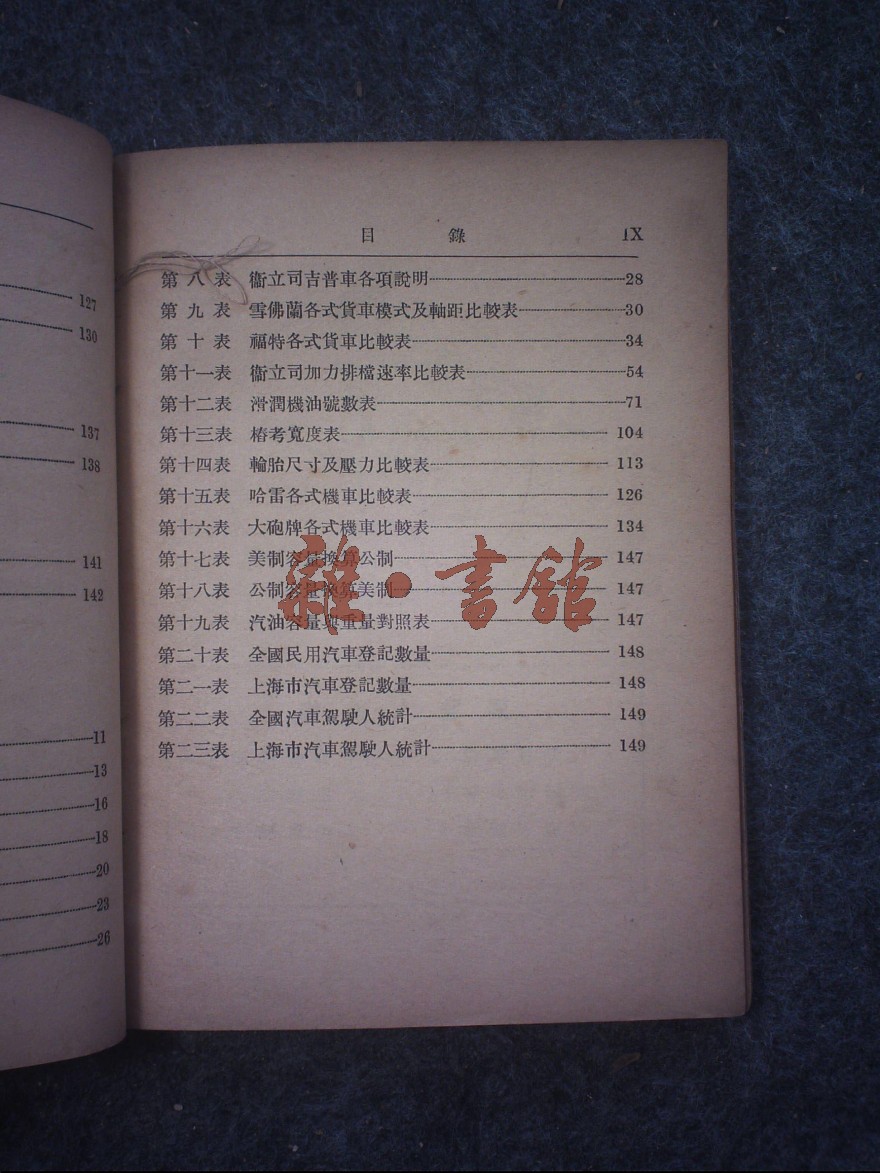 127
130
137
138
141
142
11
13
16
18
20
23
26
目錄 IX
第八表 衞立司吉普車各項說明 28
第九表 雪佛蘭各式貨車模式及軸距比較表 30
第十表 福特各式貨車比較表 34
第十一表 衞立司加力排檔速率比較表 54
第十二表 滑潤機油號數表 71
第十三表 樁考寬度表 104
第十四表 輪胎尺寸及壓力比較表 113
第十五表 哈雷各式機車比較表 126
第十六表 大砲牌各式機車比較表 134
第十七表 美制容量換算公制 147
第十八表 公制容量換算美制 147
第十九表 汽油容量與重量對照表 147
第二十表 全國民用汽車登記數量 148
第二一表 上海市汽車登記數量 148
第二二表 全國汽車駕駛人統計 149
第二三表 上海市汽車駕駛人統計 149
雜·書舘